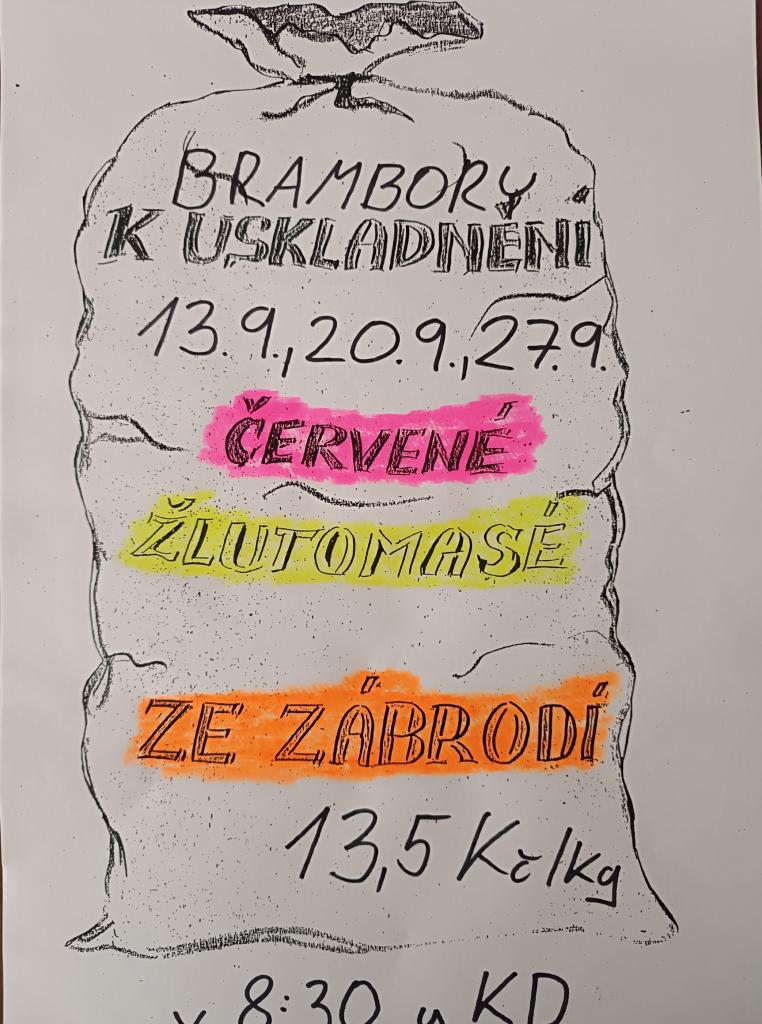 BRAMBORY
K USKLADNĚNÍ
13.9., 20.9., 27.9.
ČERVENÉ
ŽLUTOMASÉ
ZE ZÁBRODÍ
13,5 Kč/kg
v 8:30 u KD